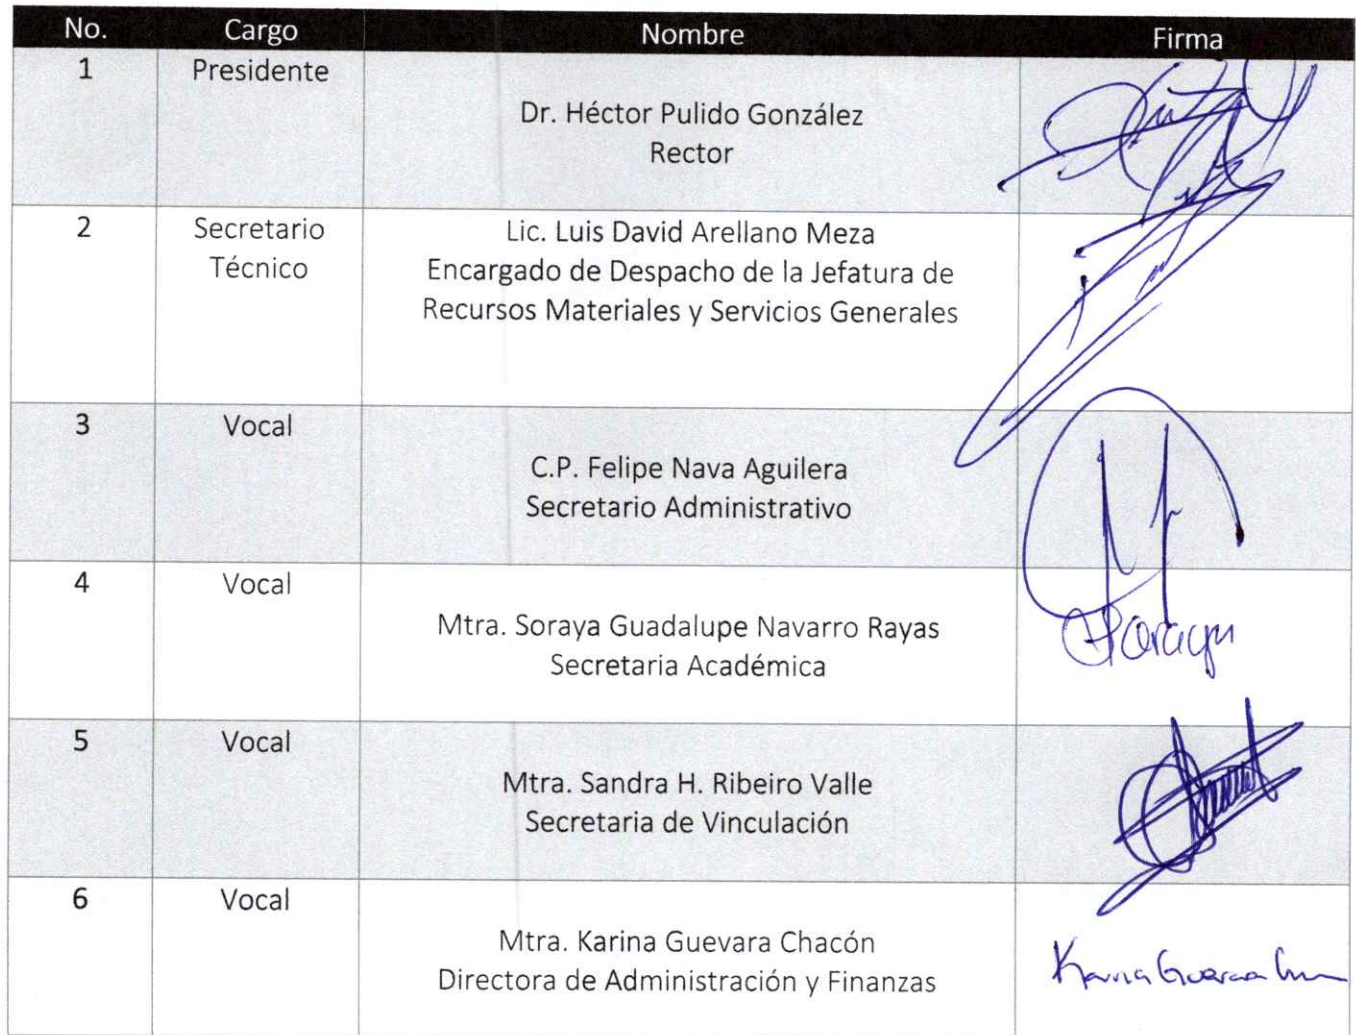 No. Cargo Nombre Firma
1 Presidente
Dr. Héctor Pulido González
Rector
2 Secretario Técnico
Lic. Luis David Arellano Meza
Encargado de Despacho de la Jefatura de
Recursos Materiales y Servicios Generales
3 Vocal
C.P. Felipe Nava Aguilera
Secretario Administrativo
4 Vocal
Mtra. Soraya Guadalupe Navarro Rayas
Secretaria Académica
5 Vocal
Mtra. Sandra H. Ribeiro Valle
Secretaria de Vinculación
6 Vocal
Mtra. Karina Guevara Chacón
Directora de Administración y Finanzas